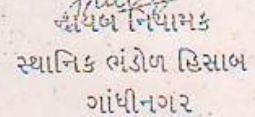 નાયબ નિયામક
સ્થાનિક ભંડોળ હિસાબ
ગાંધીનગર